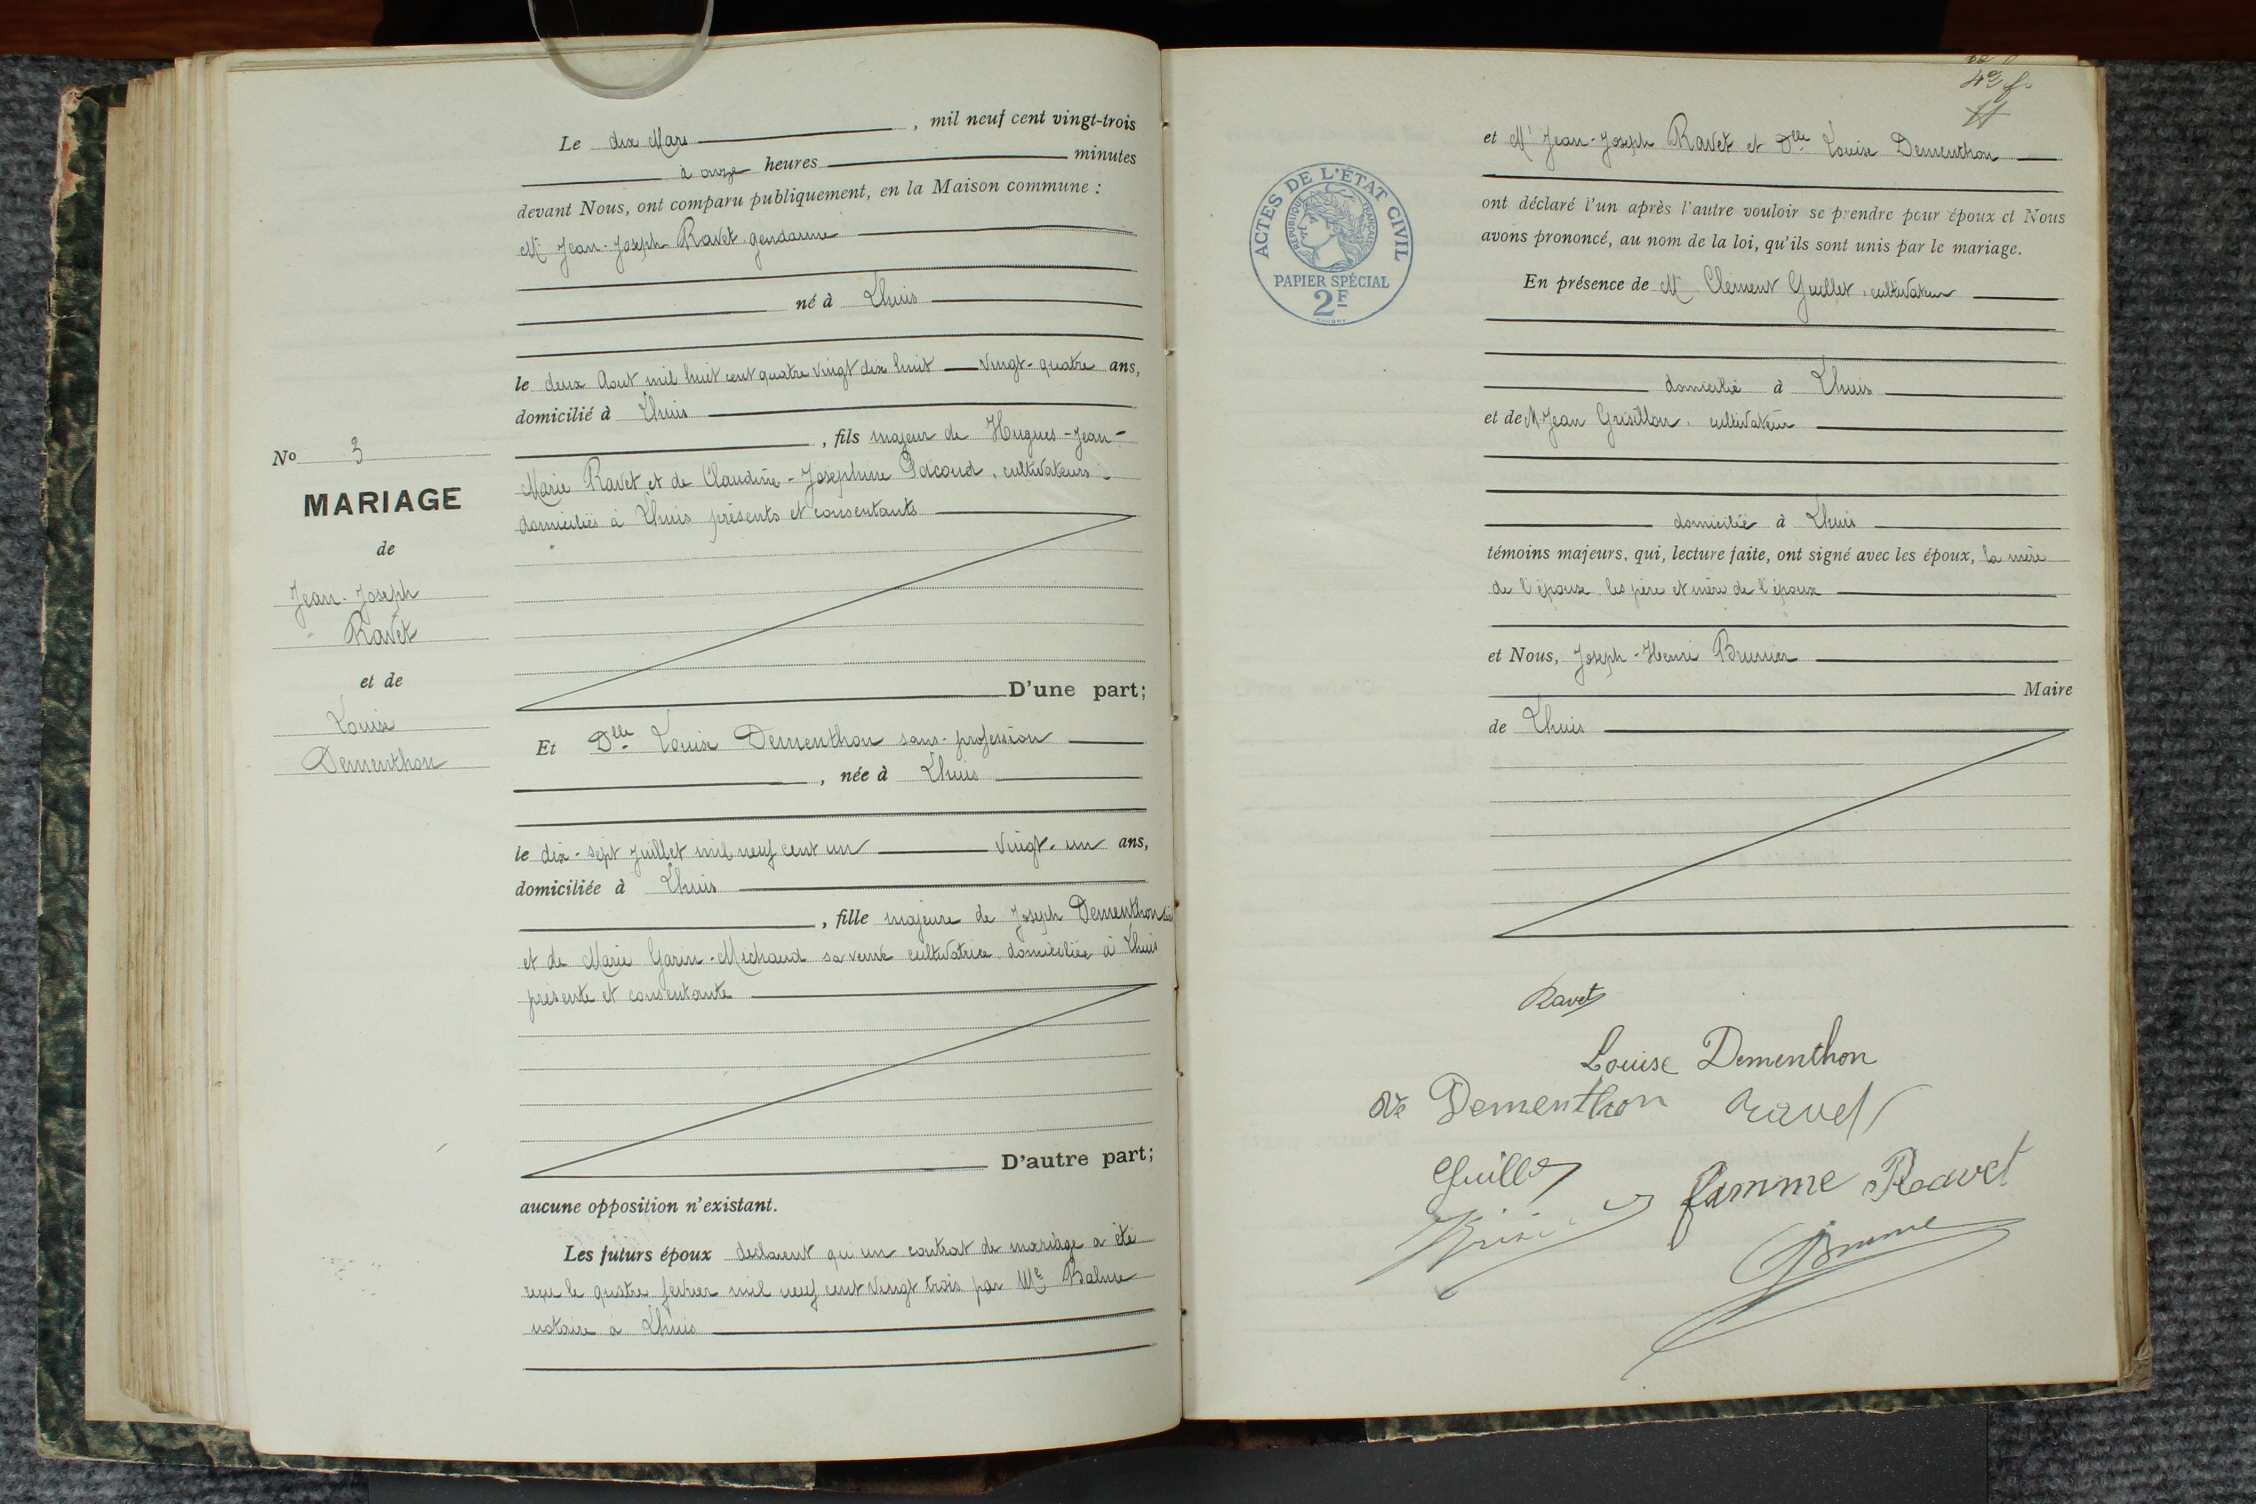 Le dix Mars, mil neuf cent vingt-trois
à onze heures minutes
devant Nous, ont comparu publiquement, en la Maison commune :
Mr Jean-Joseph Ravet, gendarme
né à Lhuis
le deux Aout mil huit cent quatre vingt dix huit vingt-quatre ans,
domicilié à Lhuis
, fils majeur de Hugues-Jean-
Marie Ravet et de Claudine-Josephine Pacoud, cultivateurs
domiciliés à Lhuis présents et consentants
D'une part;
No 3
MARIAGE
de
Jean-Joseph
Ravet
et de
Louise
Dementhon
Et Dlle Louise Dementhon sans profession
, née à Lhuis
le dix-sept Juillet mil neuf cent un vingt-un ans,
domiciliée à Lhuis
, fille majeure de Joseph Dementhon
et de Marie Garin-Michaud sa veuve cultivatrice domiciliée à Lhuis
présente et consentante
D'autre part;
aucune opposition n'existant.
Les futurs époux declarent qu'un contrat de mariage a été
reçu le quatre février mil neuf cent vingt trois par Me
notaire à Lhuis
4e f.
et Mr Jean-Joseph Ravet et Dlle Louise Dementhon
ont déclaré l'un après l'autre vouloir se prendre pour époux et Nous
avons prononcé, au nom de la loi, qu'ils sont unis par le mariage.
ACTES DE L'ÉTAT CIVIL
RÉPUBLIQUE FRANÇAISE
PAPIER SPÉCIAL
2F
En présence de Mr Clément Guillet, cultivateur
domicilié à Lhuis
et de M. Jean Grisillon, cultivateur
domicilié à Lhuis
témoins majeurs, qui, lecture faite, ont signé avec les époux, la mère
de l'épouse, les père et mère de l'époux
et Nous, Joseph-Henri Brunier
Maire
de Lhuis
Ravet
Louise Dementhon
Ve Dementhon Ravet
Guillet
femme Ravet